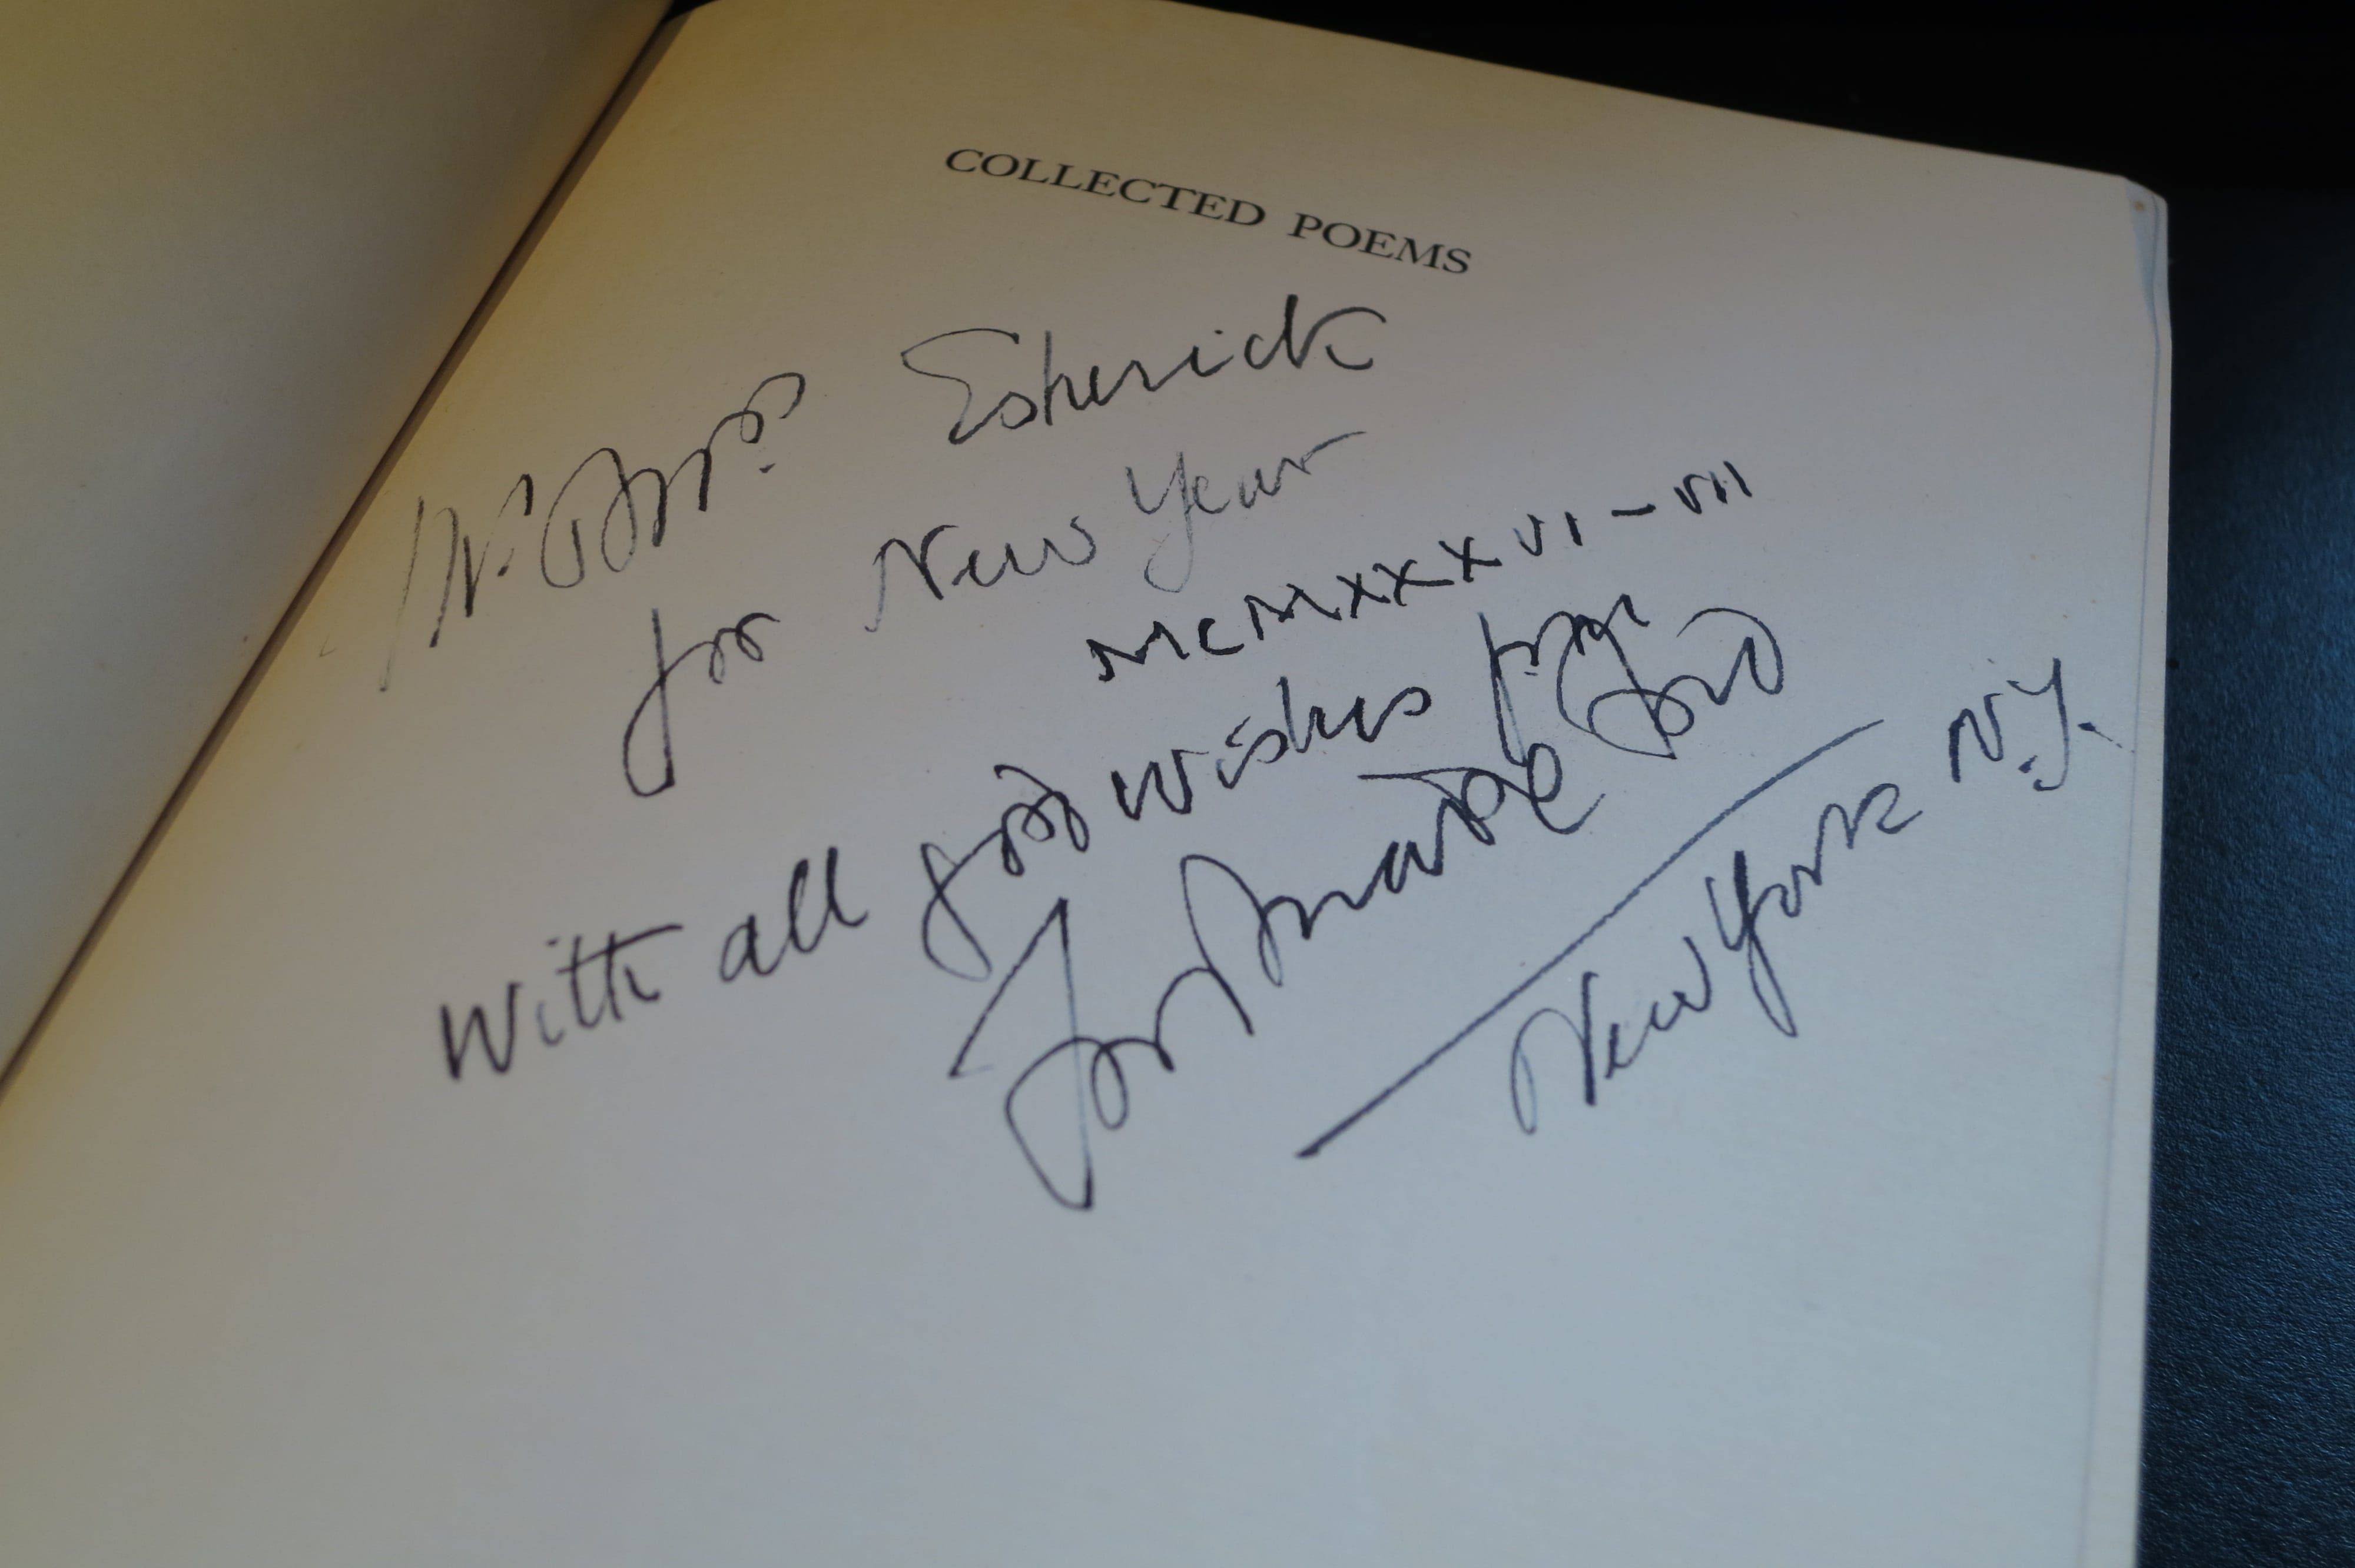 COLLECTED POEMS
Mr. & Mrs. Esherick
for New Year
MCMXXXVI-VII
With all good wishes from
Ford Madox Ford
New York N.Y.